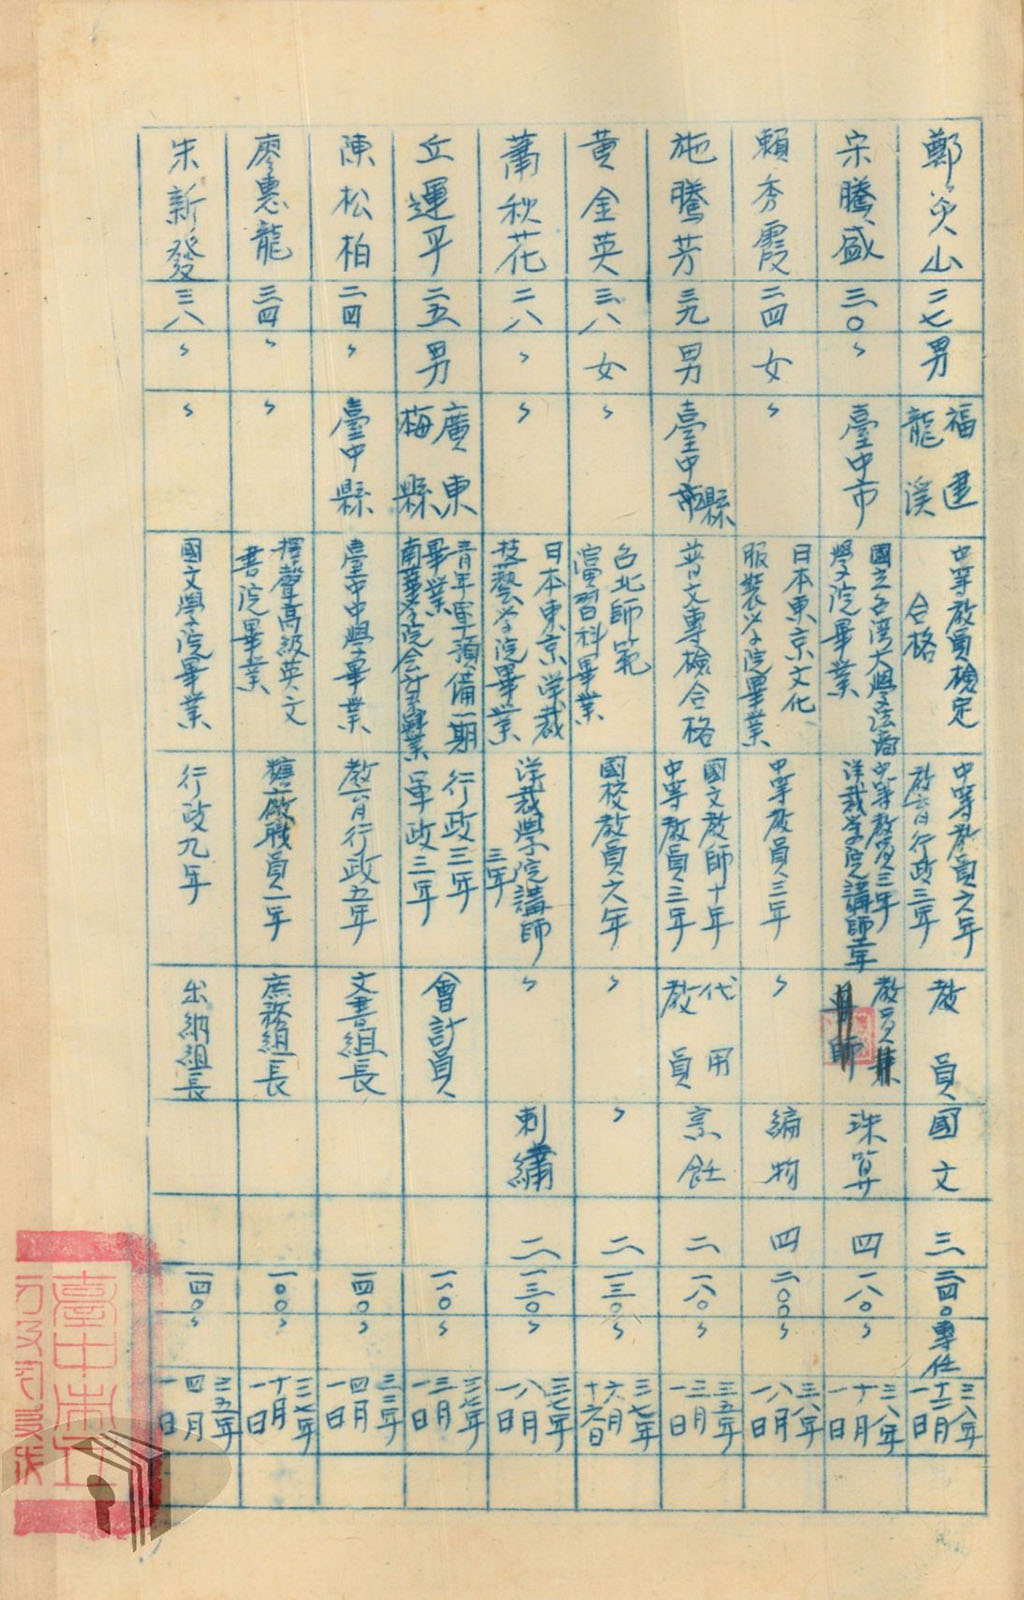 鄭炎山
二七
男
福建
龍溪
中等教員檢定
合格
中等教員六年
教育行政三年
教員
國文
三
二四〇
專任
三八年
十二月
一日
宋騰盛
三〇
〃
臺中市
國立台灣大學法商
學院畢業
中等教員三年
洋裁學院講師二年
教員兼
導師
珠算
四
一八〇
〃
三八年
十月
一日
賴秀霞
二四
女
〃
日本東京文化
服裝学院畢業
中等教員三年
〃
編物
四
二〇〇
〃
三六年
八月
一日
施騰芳
三九
男
臺中縣
普文專檢合格
國文教師十年
中等教員三年
代用
教員
烹飪
二
一八〇
〃
三五年
三月
一日
黄金英
三八
女
〃
台北師範
演習科畢業
國校教員六年
〃
〃
二
一三〇
〃
三七年
六月
十六日
蕭秋花
二八
〃
〃
日本東京洋裁
技藝学院畢業
洋裁學院講師
三年
〃
刺繡
二
一三〇
〃
三七年
八月
一日
丘運平
二五
男
廣東
梅縣
青年軍預備一期
畢業
南華学院会計系肄業
行政三年
軍政三年
會計員
一一〇
〃
三七年
三月
一日
陳松柏
二四
〃
臺中縣
臺中中學畢業
教育行政五年
文書組長
一四〇
〃
三三年
四月
一日
廖惠龍
三四
〃
〃
擇聲高級英文
書院畢業
糖廠職員一年
庶務組長
一〇〇
〃
三七年
十月
一日
朱新發
三八
〃
〃
國文學院畢業
行政九年
出納組長
一四〇
〃
三五年
四月
一日
臺中市立